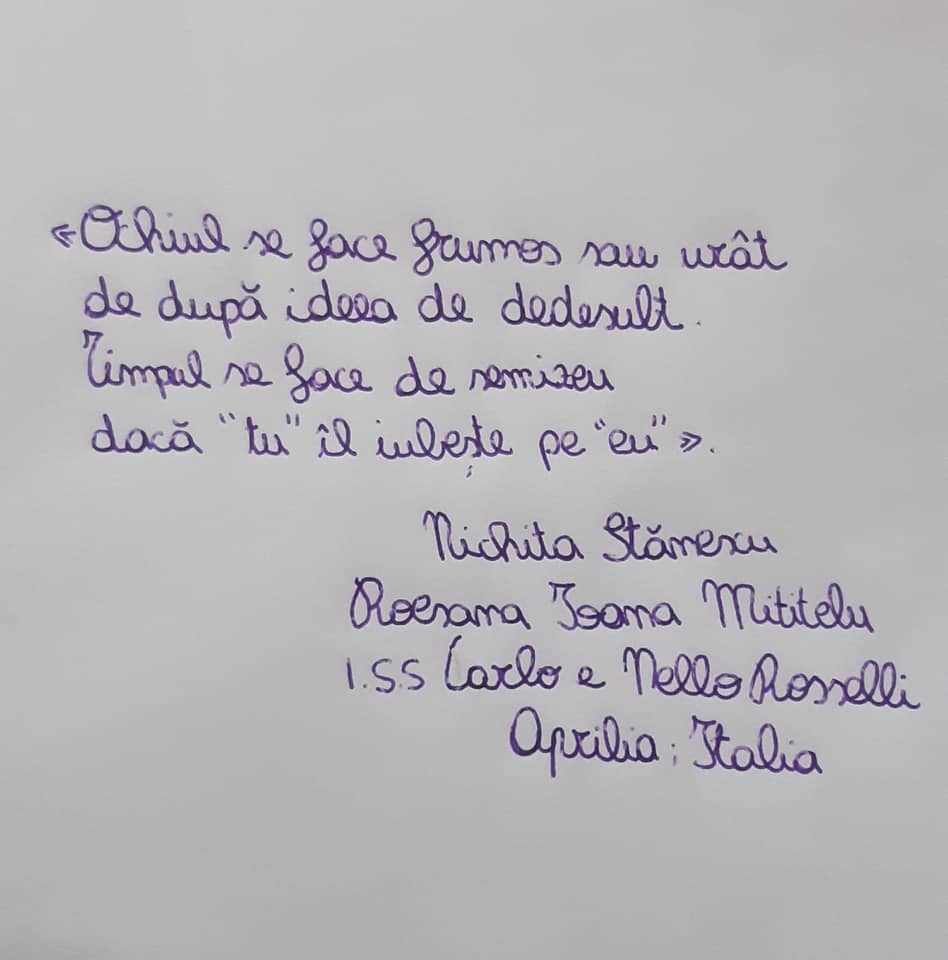 «Ochiul se face frumos sau urât
de după ideea de dedesult.
Timpul se face de semizeu
dacă "tu" îl iubește pe "eu"».
Nichita Stănescu
Roexana Ioana Mititelu
I.S.S Carlo e Nello Rosselli
Aprilia; Italia